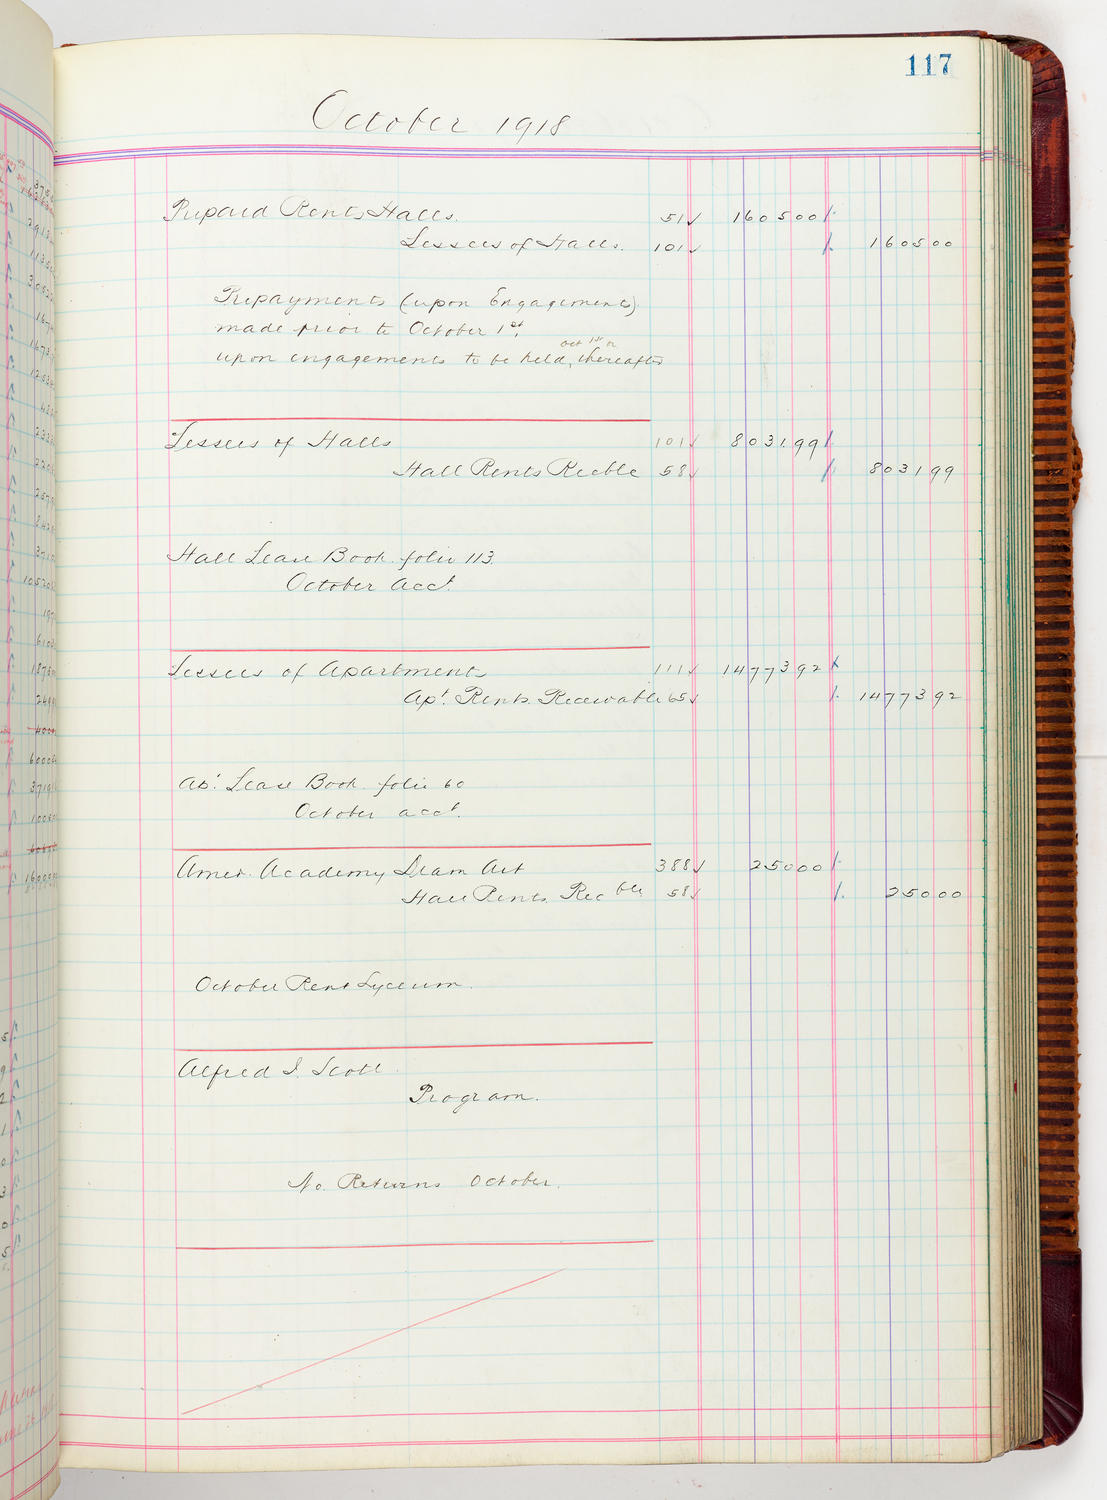 117
October 1918
Prepaid Rents Halls. 51 160500
Lessees of Halls. 101 160500
Prepayments (upon Engagements)
made prior to October 1st,
oct 1st or
upon engagements to be held, thereafter
Lessees of Halls 101 803199
Hall Rents Recble 58 803199
Hall Lease Book folio 113.
October acct.
Lessees of Apartments 111 1477392
Apt. Rents. Receivable 65 1477392
Apt. Lease Book folio 60
October acct.
Amer. Academy Dram Art 388 25000
Hall Rents. Recble 58 25000
October Rent Lyceum.
Alfred I. Scott.
Program.
No. Returns October.